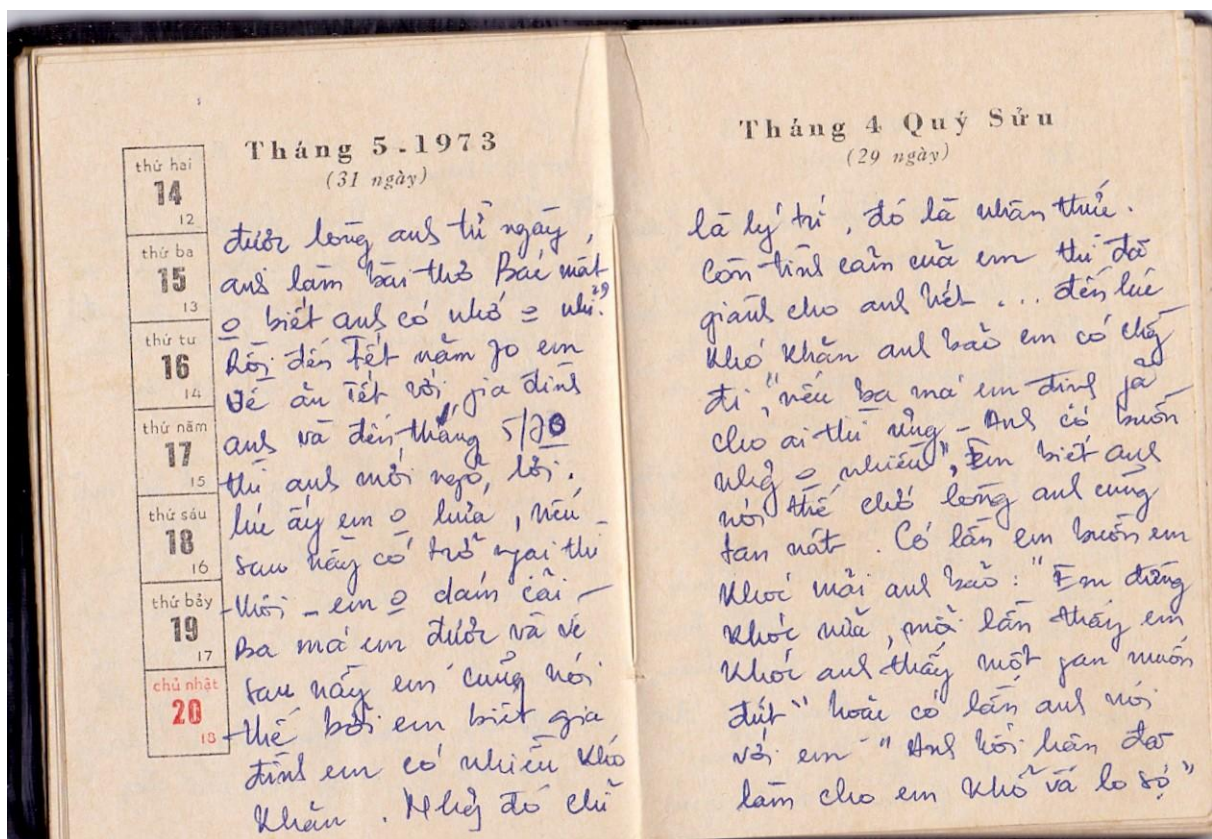 Tháng 5-1973
(31 ngày)
thứ hai
14
12
thứ ba
15
13
thứ tư
16
14
thứ năm
17
15
thứ sáu
18
16
thứ bảy
19
17
chủ nhật
20
18
được lòng anh từ ngày,
anh làm bài thơ Bác mất
o biết anh có nhớ o nhỉ?
Rồi đến Tết năm 70 em
về ăn Tết với gia đình
anh và đến tháng 5/70
thì anh mới ngỏ lời.
lúc ấy em o hứa, nếu
sau này có trở ngại thì
thôi - em o dám cãi
Ba má em được và về
sau này em cũng nói
thế bởi em biết gia
đình em có nhiều khó
khăn. Nhưng đó chỉ
Tháng 4 Quý Sửu
(29 ngày)
là lý trí, đó là nhận thức.
Còn tình cảm của em thì đã
giành cho anh hết... đến lúc
khó khăn anh bảo em có chồng
đi, "nếu ba má em định gả
cho ai thì ưng - Anh có buồn
nhưng o nhiều", Em biết anh
nói thế chớ lòng anh cũng
tan nát. Có lần em buồn em
khóc mãi anh bảo: "Em đừng
khóc nữa, mỗi lần thấy em
khóc anh thấy một gan muốn
đứt" hoặc có lần anh nói
với em "Anh hối hận đã
làm cho em khổ và lo sợ"